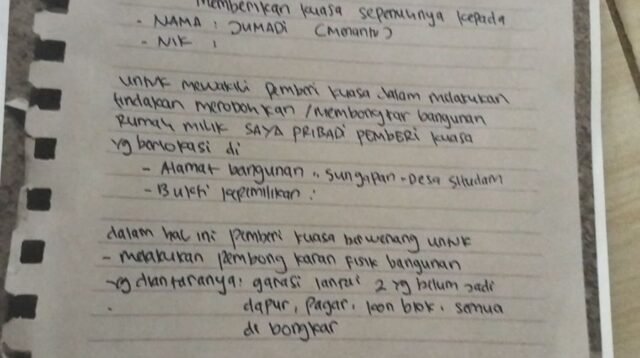 Memberikan kuasa sepenuhnya kepada
- NAMA : JUMADI (Menantu)
- NIK :
untuk mewakili pemberi kuasa dalam melakukan
tindakan merobohkan / Membongkar bangunan
Rumah MILIK SAYA PRIBADI PEMBERI kuasa
yg berlokasi di
- Alamat bangunan :
- Bukti kepemilikan :
dalam hal ini pemberi kuasa berwenang untuk
- melakukan pembong karan fisik bangunan
yg diantaranya: garasi lantai 2 yg belum jadi
dapur, pagar, kon blok, semua
di bongkar